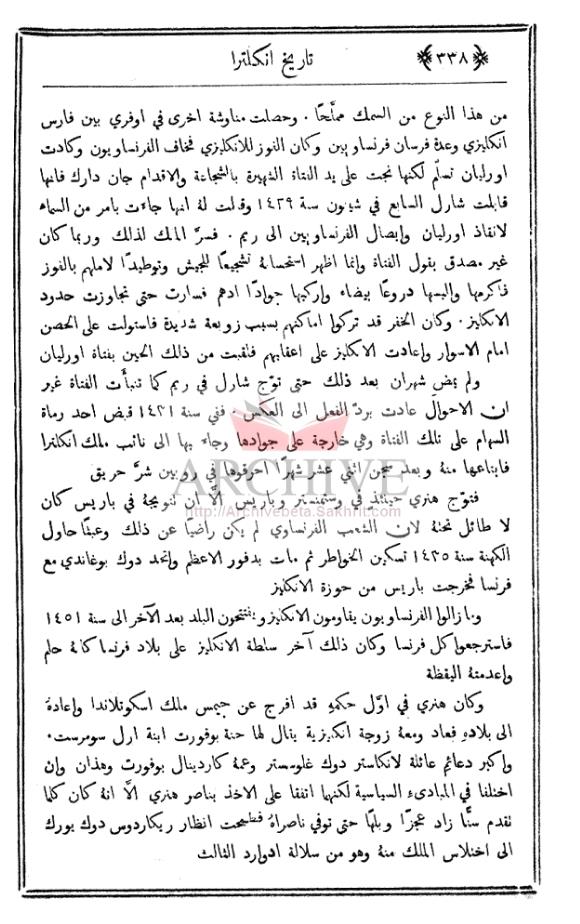 ﴿٣٣٨﴾
تاريخ انكلترا
من هذا النوع من السمك مملَّحًا . وحصلت مناوشة اخرى في اوفري بين فارس
انكليزي وعدة فرسان فرنساويين وكان الفوز للانكليزي فخاف الفرنساويون وكادت
اورليان تسلّم لكنها نجت على يد الفتاة الشهيرة بالشجاعة والاقدام جان دارك فانها
قابلت شارل السابع في شينون سنة ١٤٢٩ وقالت لهُ انها جاءت بامر من السماء
لانقاذ اورليان وإيصال الفرنساويين الى ريم . فسرَّ الملك لذلك وربما كان
غير مصدق بقول الفتاة وانما اظهر استحسانهُ تشجيعًا للجيش وتوطيدًا لاملهم بالفوز
فاكرمها والبسها دروعًا بيضاء واركبها جوادًا ادهم فسارت حتى تجاوزت حدود
الانكليز . وكان الخفر قد تركوا اماكنهم بسبب زوبعة شديدة فاستولت على الحصن
امام الاسوار واعادت الانكليز على اعقابهم فلقبت من ذلك الحين بفتاة اورليان
ولم يمض شهران بعد ذلك حتى توّج شارل في ريم كما تنبأَت الفتاة غير
ان الاحوال عادت بردّ الفعل الى العكس . ففي سنة ١٤٣١ قبض احد رماة
السهام على تلك الفتاة وهي خارجة على جوادها وجاء بها الى نائب ملك انكلترا
فابتاعها منهُ وبعد سجن اثني عشر شهرًا احرقوها في روبين شرَّ حريق
فتوّج هنري حينئذ في وستمنستر وباريس الَّا ان تتويجهُ في باريس كان
لا طائل تحتهُ لان الشعب الفرنساوي لم يكن راضيًا عن ذلك وعبثًا حاول
الكهنة سنة ١٤٣٥ تسكين الخواطر ثم مات بدفور الاعظم واتحد دوك بوغاندي مع
فرنسا فخرجت باريس من حوزة الانكليز
وما زالوا الفرنساويون يقاومون الانكليز ويفتتحون البلد بعد الآخر الى سنة ١٤٥١
فاسترجعوا كل فرنسا وكان ذلك آخر سلطة الانكليز على بلاد فرنسا كانهُ حلم
واعدمتهُ اليقظة
وكان هنري في اوَّل حكمهِ قد افرج عن جيمس ملك اسكوتلاندا واعادهُ
الى بلادهِ فعاد ومعهُ زوجة انكليزية يقال لها حنة بوفورت ابنة ارل سومرست.
واكبر دعائم عائلة لانكاستر دوك غلوستر وعمهُ كاردينال بوفورت وهذان وإن
اختلفا في المبادئ السياسية لكنهما اتفقا على الاخذ بناصر هنري الَّا انهُ كان كلما
تقدم سنًّا زاد عجزًا وبلهًا حتى توفي ناصراهُ فطمحت انظار ريكاردوس دوك يورك
الى اختلاس الملك منهُ وهو من سلالة ادوارد الثالث
ARCHIVE
http://Archivebeta.Sakhrit.com